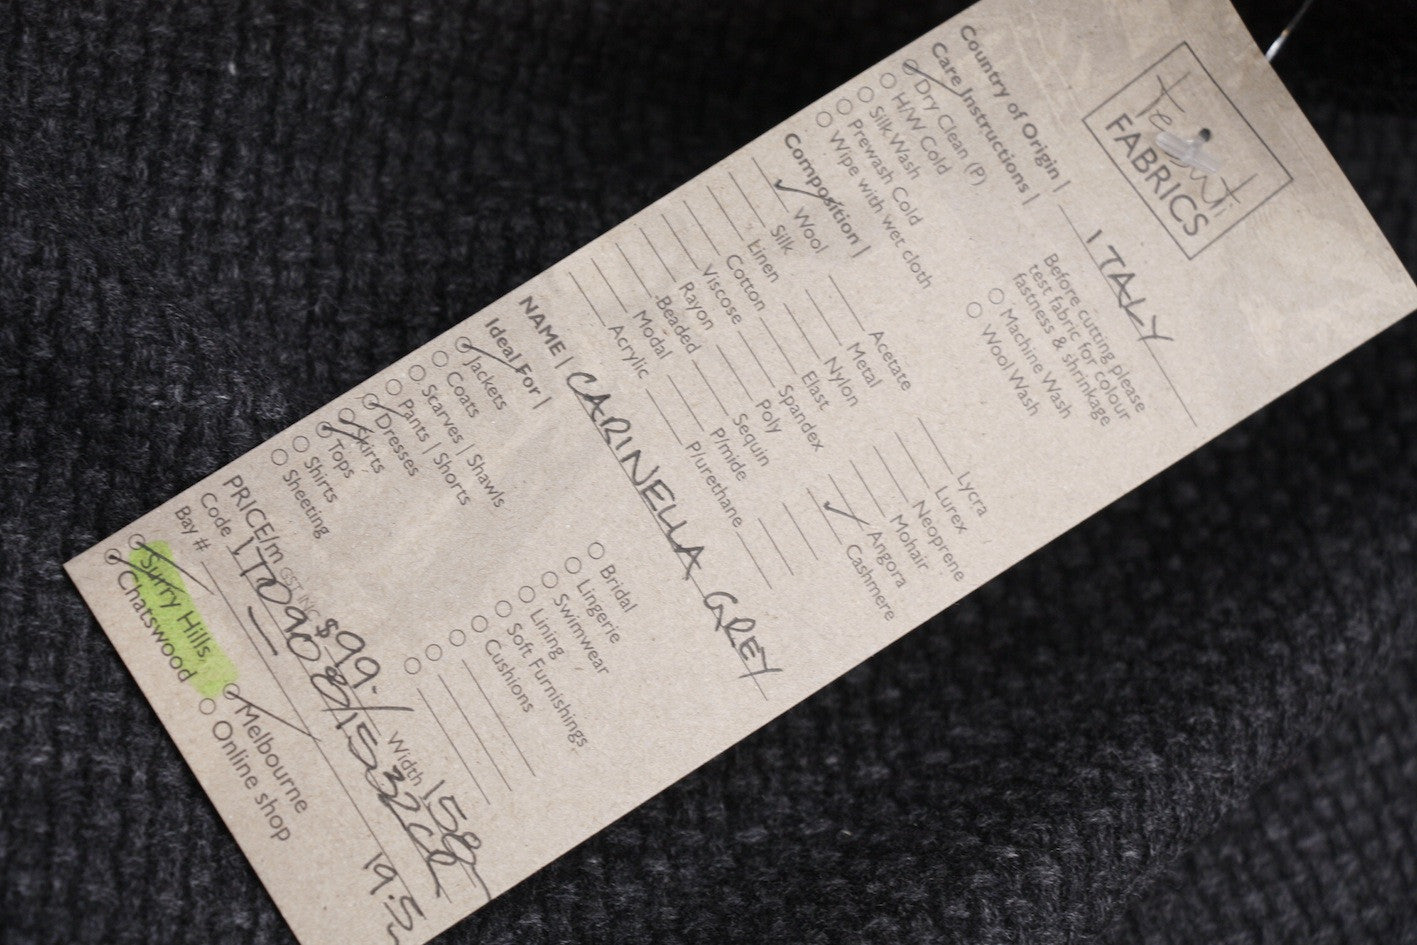 Tessuti
FABRICS
Country of Origin | ITALY
Care Instructions |
Dry Clean (P)
H/W Cold
Silk Wash
Prewash Cold
Wipe with wet cloth
Before cutting please
test fabric for colour
fastness & shrinkage
Machine Wash
Wool Wash
Composition |
Wool
Silk
Linen
Cotton
Viscose
Rayon
Beaded
Modal
Acrylic
Acetate
Metal
Nylon
Elast
Spandex
Poly
Sequin
P/mide
P/urethane
Lycra
Lurex
Neoprene
Mohair
Angora
Cashmere
NAME | CARINELLA GREY
Ideal For |
Jackets
Coats
Scarves | Shawls
Pants | Shorts
Dresses
Skirts
Tops
Shirts
Sheeting
Bridal
Lingerie
Swimwear
Lining
Soft Furnishings
Cushions
PRICE/m GST INC $99. Width 158
Code
Bay #
19.5
Surry Hills
Chatswood
Melbourne
Online shop